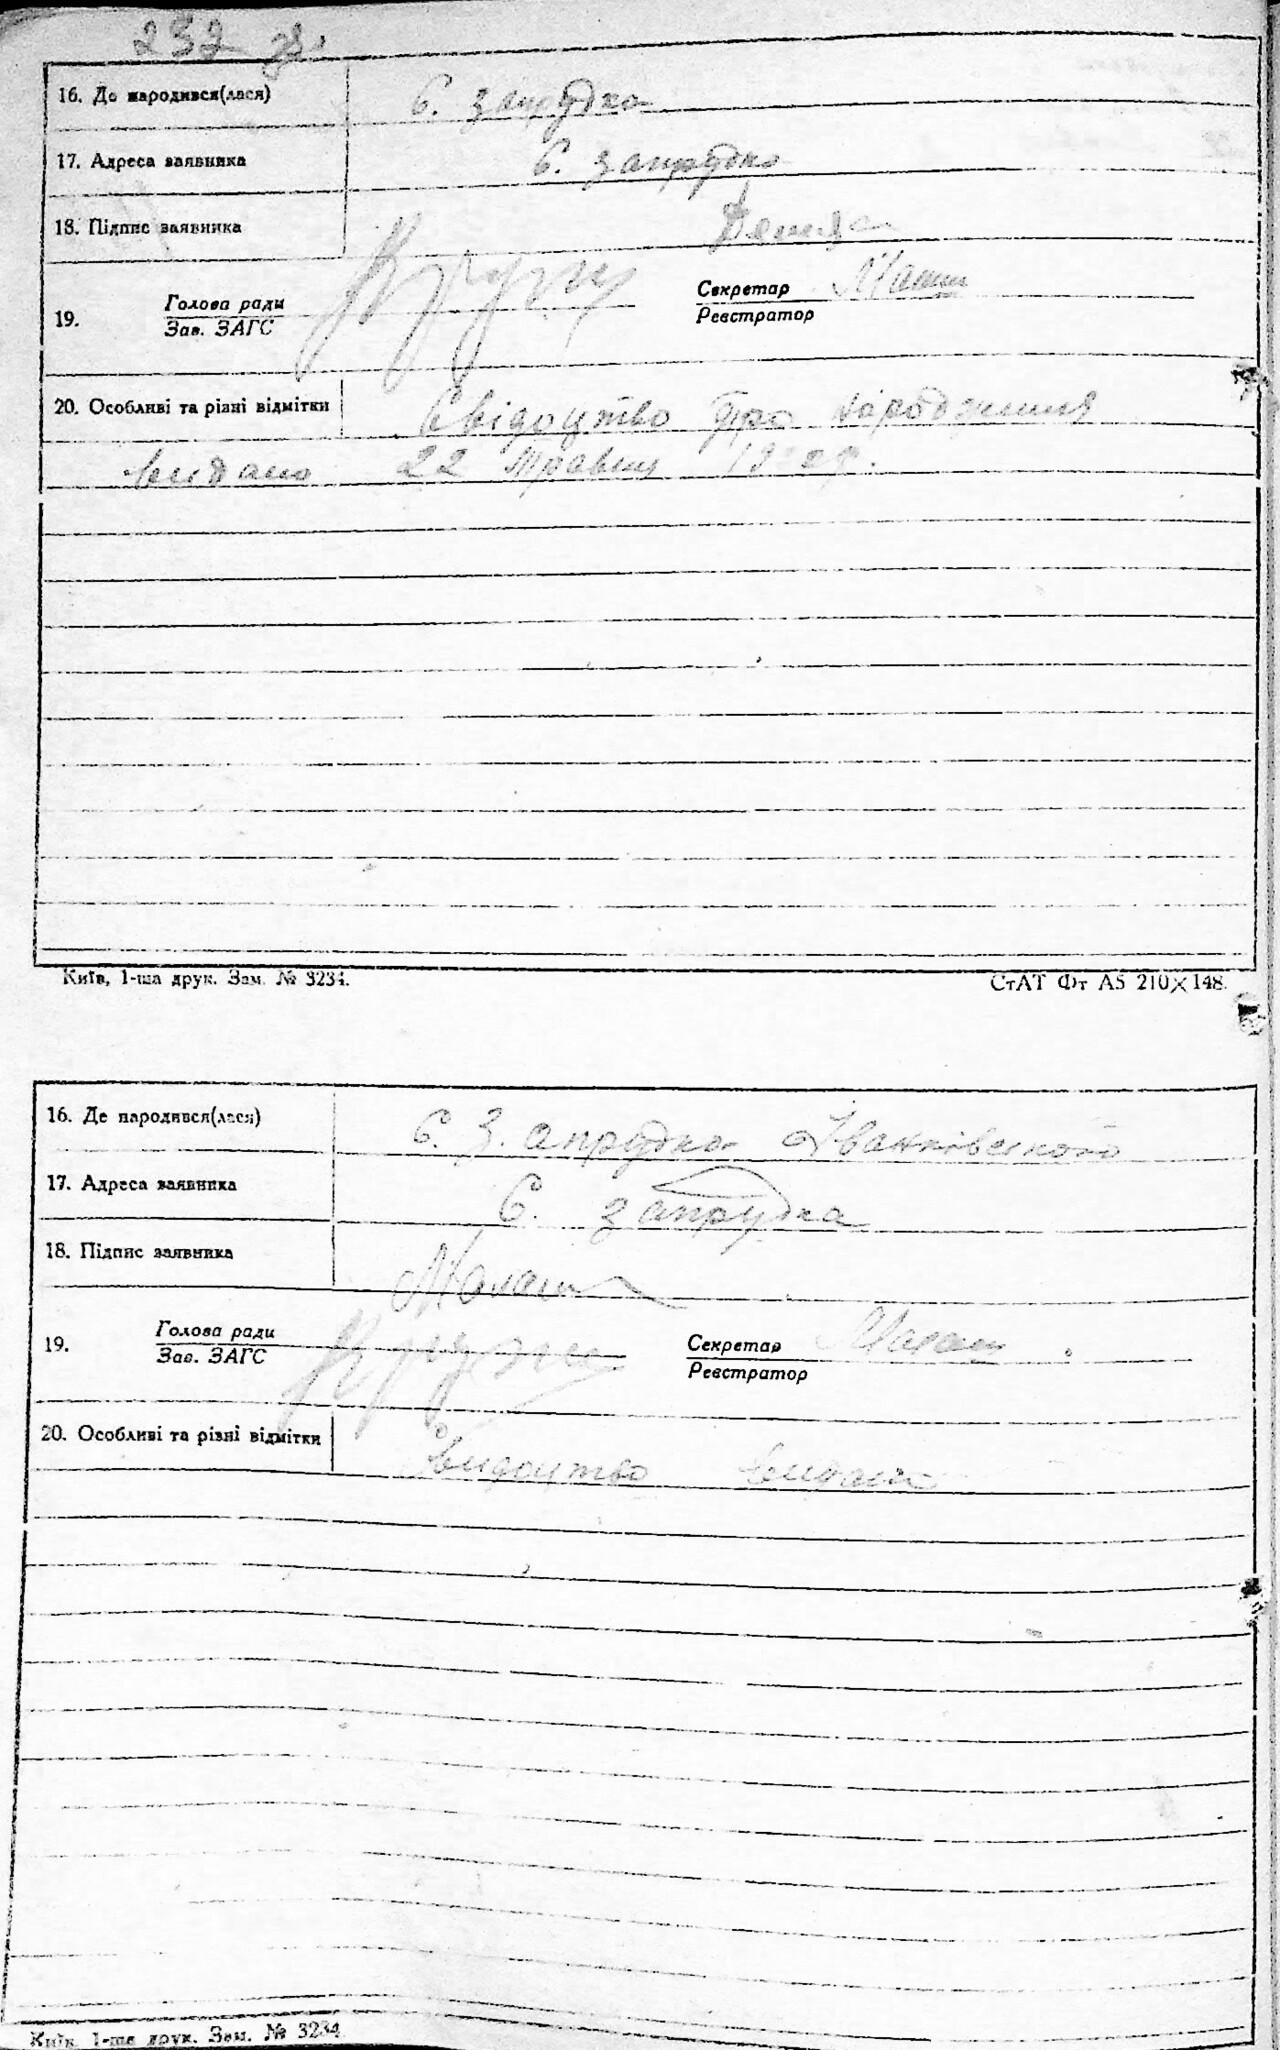 232 зв.
16. Де народився(лася) С. Запрудка
17. Адреса заявника С. Запрудка
18. Підпис заявника
19. Голова ради Секретар
Зав. ЗАГС Реєстратор
20. Особливі та різні відмітки Свідоцтво про народження
видано 22 травня
Київ, 1-ша друк. Зам. № 3234. СтАТ Фт А5 210×148.
16. Де народився(лася) С. Запрудка Іванківського
17. Адреса заявника С. Запрудка
18. Підпис заявника
19. Голова ради Секретар
Зав. ЗАГС Реєстратор
20. Особливі та різні відмітки
Свидоцтво видано
Київ, 1-ша друк. Зам. № 3234